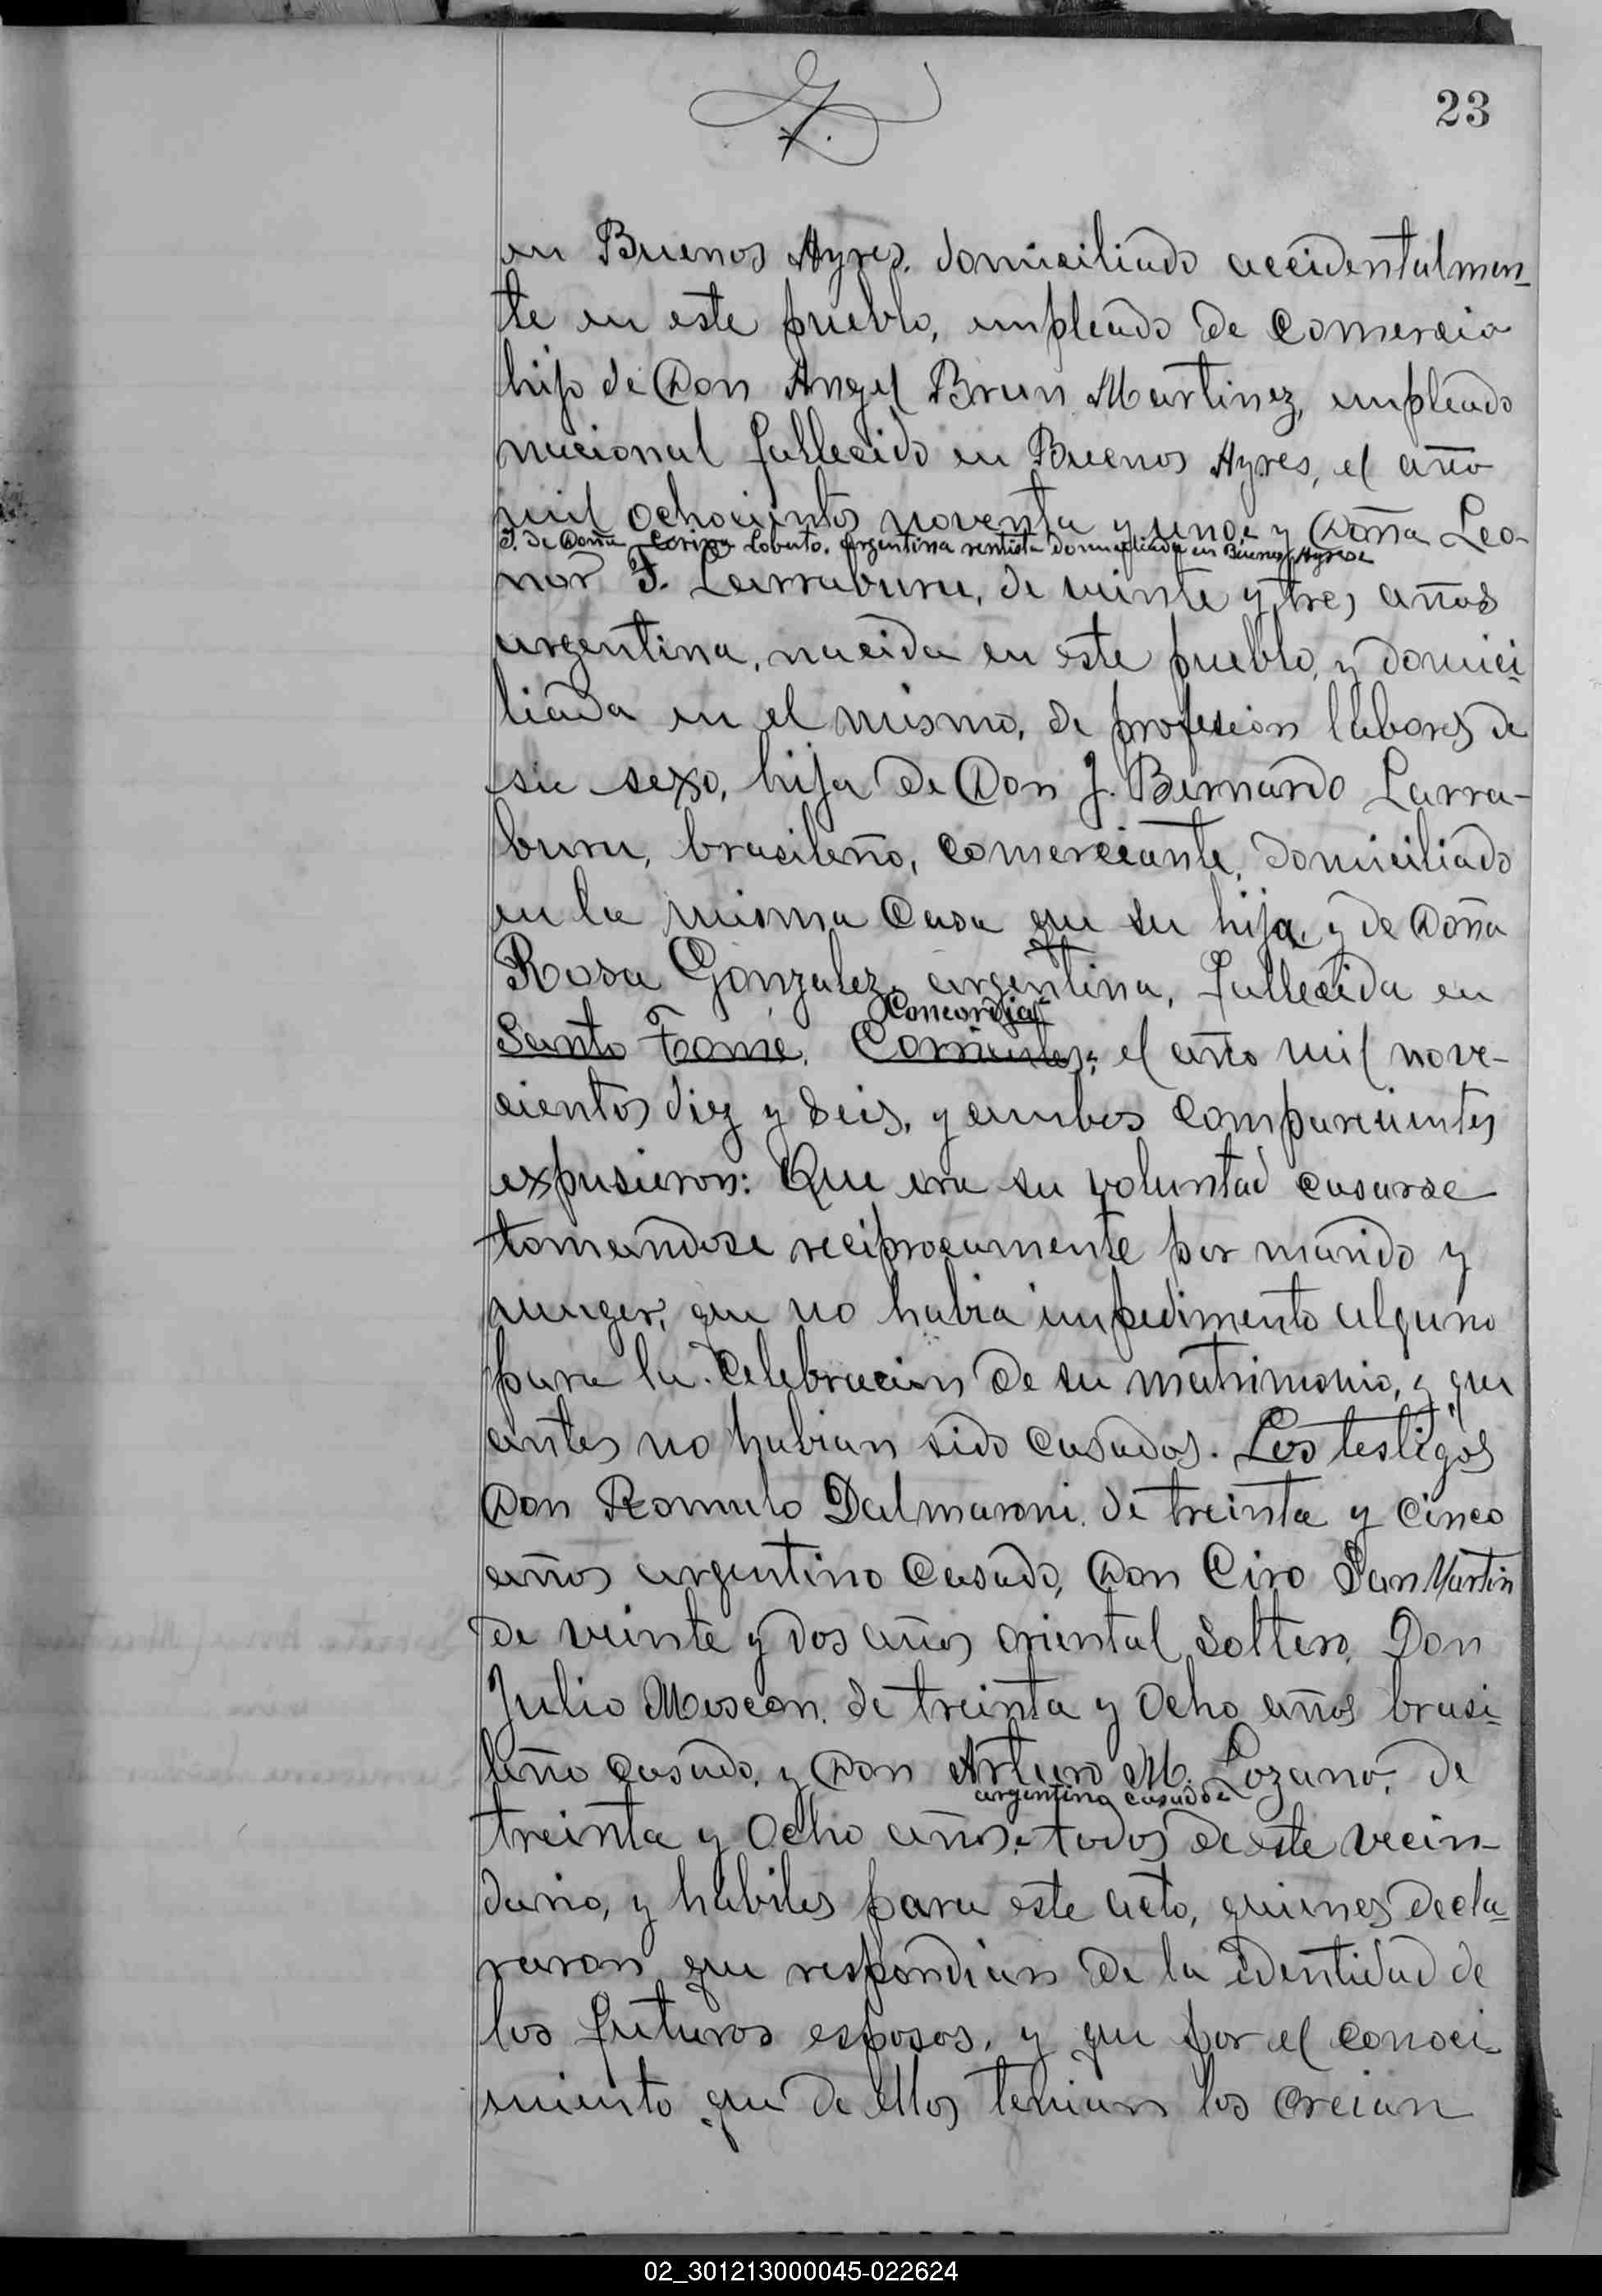 23
en Buenos Ayres, domiciliado accidentalmen-
te en este pueblo, empleado de Comercio
hijo de Don Angel Brun Martinez, empleado
nacional fallecido en Buenos Ayres, el año
mil ochocientos noventa y uno, y Doña Leo-
y de Doña Corina Loberto, argentina rentista domiciliada en Buenos Ayres
nor F. Larraburu, de veinte y tres años
argentina, nacida en este pueblo, y domici-
liada en el mismo, de profesion labores de
su sexo, hija de Don J. Bernardo Larra-
buru, brasileño, comerciante, domiciliado
en la misma Casa que su hija, y de Doña
Rosa Gonzalez, argentina, fallecida en
Concordia
Santo Tomé. Corrientes, el año mil nove-
cientos diez y seis, y ambos comparecientes
expusieron: Que era su voluntad casarse
tomandose reciprocamente por marido y
muger, que no habia impedimento alguno
para la Celebracion de su matrimonio, y que
antes no habian sido casados. Los testigos
Don Romulo Dalmaroni de treinta y cinco
años argentino Casado, Don Ciro San Martin
de veinte y dos años oriental soltero, Don
Julio Moscon, de treinta y ocho años brasi-
leño casado, y Don Arturo M. Lozano, de
argentino casado
treinta y ocho años, todos de este vecin-
dario, y habiles para este acto, quienes decla-
raron que respondian de la identidad de
los futuros esposos, y que por el conoci-
miento que de ellos tenian los creian
02_301213000045-022624